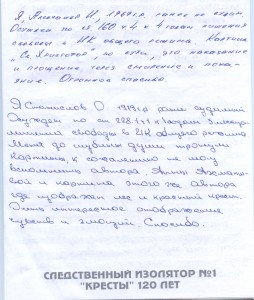 Я, Александр И, 1969 г.
Осужден по ст 160 ч 4 к 4 годам лишения
свободы в ИК общего режима. Картина
это наказание
и прощение через смирение и пока-
яние. Огромное спасибо.
Я Станислав О. 1919 г.р. ранее судимый
Осужден по ст 228 ч 1 к
лишения свободы в ИК общего режима
Меня до глубины души тронули
картины, к сожалению не могу
вспомнить автора. Анны Ахмато-
вой и картина этого же автора
где изображен лес и красный крест.
Очень интересное отображение
чувств и эмоций. Спасибо.
СЛЕДСТВЕННЫЙ ИЗОЛЯТОР №1
"КРЕСТЫ" 120 ЛЕТ